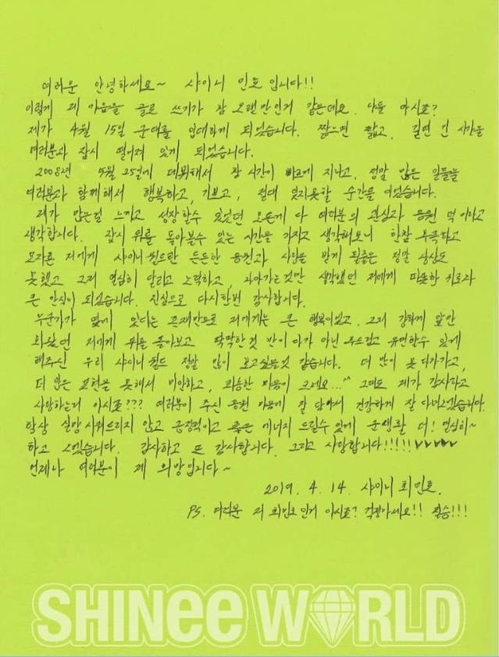 여러분 안녕하세요~ 샤이니 민호입니다!!
이렇게 제 마음을 글로 쓰기가 참 오랜만인거 같은데요. 다들 아시죠?
제가 4월 15일 군대를 입대하게 되었습니다. 짧으면 짧고, 길면 긴 시간을
여러분과 잠시 떨어져 있게 되었습니다.
2008년 5월 25일에 데뷔해서 참 시간이 빠르게 지나고, 정말 많은 일들을
여러분과 함께해서 행복하고, 기쁘고, 절대 잊지못할 순간을 여었습니다.
제가 많은걸 느끼고 성장할수 있었던 모든게 다 여러분의 관심과 응원 덕이라고
생각합니다. 잠시 뒤를 돌아볼수 있는 시간을 가지고 생각해보니 한참 부족하고
모자른 저에게 샤이니월드란 든든한 응원과 사랑을 받게 될줄은 정말 상상도
못했고 그저 열심히 달리고 노력하고, 나아가는것만 생각했던 저에게 따뜻한 위로와
큰 안식이 되었습니다. 진심으로 다시한번 감사합니다.
누군가가 옆에 있다는 존재만으로 저에게는 큰 행복이었고, 그저 강하게 앞만
봐왔던 저에게 뒤를 돌아보고 딱딱한 것 만이 아닌 부드럽고 유연할수 있게
해주신 우리 샤이니월드 정말 많이 보고싶을것 같습니다. 더 많이 못 다가가고,
더 많은 표현을 못해서 미안하고, 죄송한 마음이 크네요....^^ 그래도 제가 감사하고
사랑하는거 아시죠??? 여러분이 주신 응원 마음에 잘 담아서 건강하게 잘 다녀오겠습니다.
항상 실망 시켜드리지 않고 긍정적이고 좋은 에너지 드릴수 있게 군생활 더! 열심히~
하고 오겠습니다. 감사하고 또 감사합니다. 그리고 사랑합니다!!!!!♥♥♥♥
언제나 여러분이 제 희망입니다~
2019. 4. 14. 샤이니 최민호.
PS. 여러분 저 최민호인거 아시죠? 걱정마세요!! 필승!!!
SHINee WORLD